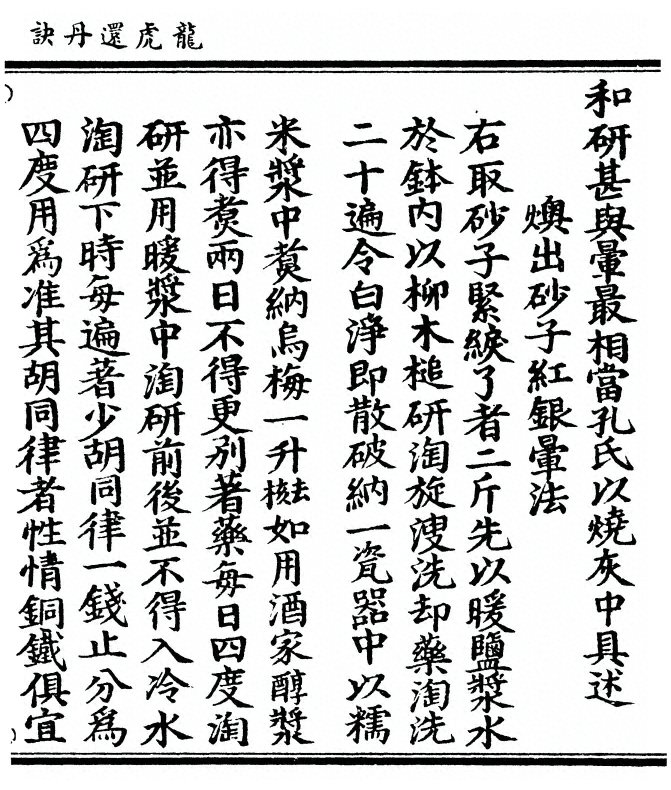 龍虎還丹訣
和研甚與暈最相當孔氏以燒灰中具述
燠出砂子紅銀暈法
右取砂子緊綟了者二斤先以暖鹽漿水
於鉢內以柳木槌研淘旋溲洗却藥淘洗
二十遍令白淨即散破納一瓷器中以糯
米漿中煑納烏梅一升去核如用酒家醇漿
亦得煑兩日不得更別著藥每日四度淘
研並用暖漿中淘研前後並不得入冷水
淘研下時每遍著少胡同律一錢止分為
四度用為准其胡同律者性情銅鐵俱宜